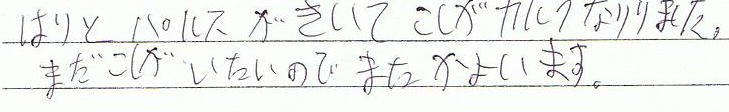 はりと パルスが きいて こしが カルクなりりました。
まだこしが いたいので また かよいます。